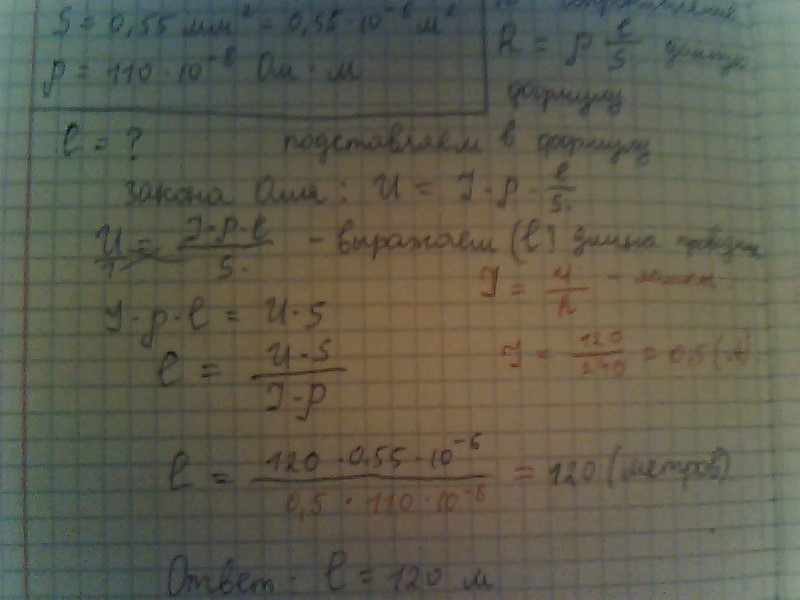 S = 0,55 мм² = 0,55·10⁻⁶ м²
ρ = 110·10⁻⁸ Ом·м
R = ρ l/S
формулу
l = ? подставляем в формулу
закона Ома: U = I·ρ·l/S.
U/1 = I·ρ·l/S. - выражаем (l) длина
I·ρ·l = U·S
I = U/R
l = U·S/I·ρ
I = 120/240 = 0,5 (А)
l = 120·0,55·10⁻⁶/0,5·110·10⁻⁸ = 120 (метров)
Ответ: l = 120 м